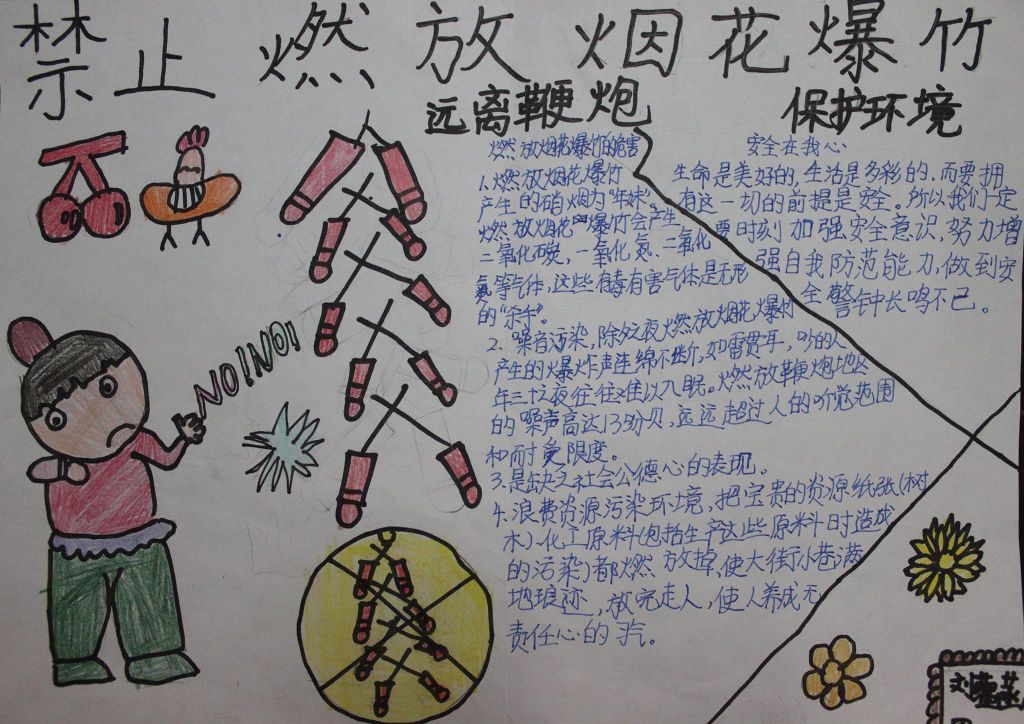 禁止燃放烟花爆竹
远离鞭炮
保护环境
燃放烟花爆竹的危害
1.燃放烟花爆竹
产生的硝烟为"年妹"
燃放烟花爆竹会产生
二氧化碳,一氧化氮、二氧化
氮等气体,这些有毒有害气体是无形
的"杀手"。
2、噪音污染,除夕夜燃放烟花爆竹
产生的爆炸声连绵不断,如雷贯耳,吵的人
年三十夜往往难以入眠。燃放鞭炮地区
的噪声高达135分贝,远远超过人的听觉范围
和耐受限度。
3.是缺乏社会公德心的表现。
4.浪费资源污染环境,把宝贵的资源纸张(树
木)、化工原料(包括生产这些原料时造成
的污染)都燃放掉,使大街小巷满
地琅迹,放完走人,使人养成无
责任心的习气。
安全在我心
生命是美好的,生活是多彩的,而要拥
有这一切的前提是安全。所以我们一定
要时刻加强安全意识,努力增
强自我防范能力,做到安
全警钟长鸣不已。
NO!NO!
刘